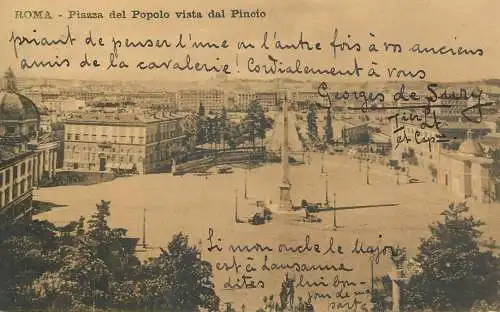 ROMA - Piazza del Popolo vista dal Pincio
priant de penser l'une ou l'autre fois à vos anciens
amis de la cavalerie! Cordialement à vous
Georges de
et Cap
Si mon oncle le Major
est à Lausanna
dites lui bon-
jour de ma
part